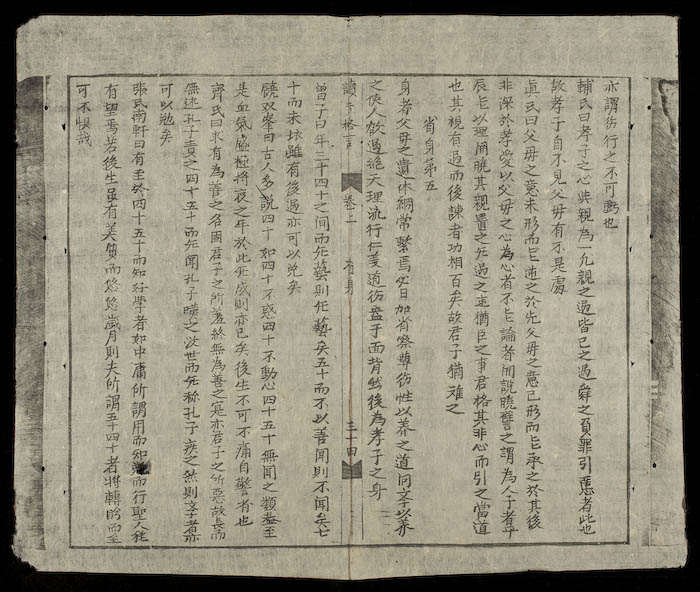 亦謂彷行之不可虧也
輔氏曰孝子之心與親為一凡親之過皆己之過舜之負罪引慝者此也
故孝子自不見父母有不是處
真氏曰父母之意未形而能逆之於先父母之意已形而能承之於其後
非深於孝愛以父母之心為心者不能論者開說曉譬之謂為人子者平
辰能以理開曉其親置之无過之地猶臣之事君格其非心而引之當道
也其視有過而後諫者功相百矣故君子猶难之
省身第五
身者父毋之遺体綱常繫焉必日加省察尊彷性以养之道问学以养
之使人欲遏絕天理流行仁義道彷盎于面背然後為孝子之身
讀書格言 卷二 省身 三十四
曾子曰年三十四十之间而无藝則无藝矣五十而不以善聞則不聞矣七
十而未坏雖有後過亦可以免矣
饒双峯曰古人多説四十如四十不惑四十不動心四十五十無聞之類盖至
是血氣盛極將衰之年於此无感則亦已矣後生不可不痛自警者也
齊氏曰求有為善之名固君子之所羞終無為善之实亦君子之所惡故長而
無述孔子責之四十五十而无聞孔子嘆之沒世而无称孔子疾之然則孝者亦
可以勉矣
張氏南軒曰有至於四十五十而知好學者如中庸所謂用而知勉而行聖人猶
有望焉若後生虽有美質而悠悠歲月則夫所謂五十四十者將轉盼而至
可不惧哉